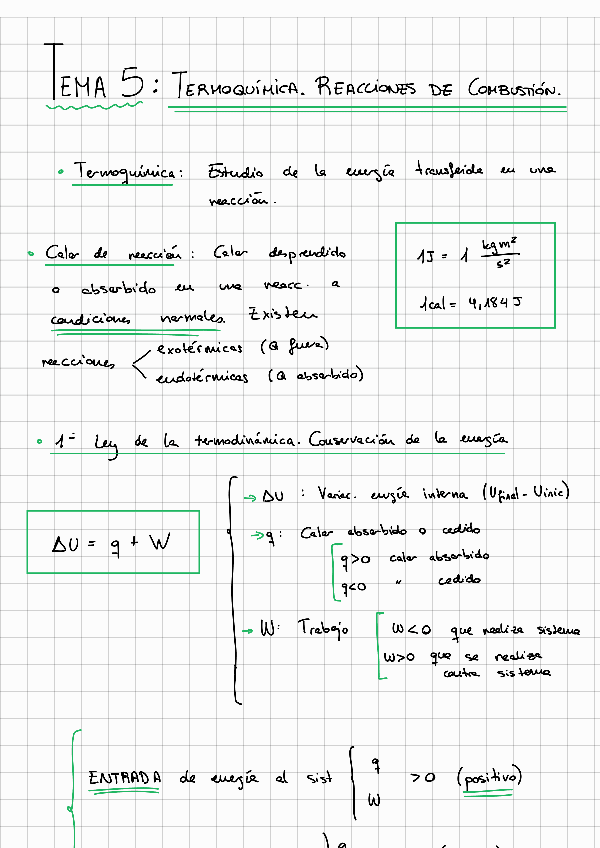 TEMA 5: TERMOQUÍMICA. REACCIONES DE COMBUSTIÓN.
• Termoquímica: Estudio de la energía transferida en una
reacción.
• Calor de reacción: Calor desprendido
o absorbido en una reacc. a
condiciones normales. Existen
reacciones
exotérmicas (Q fuera)
endotérmicas (Q absorbido)
1J = 1 kg m² / s²
1cal = 4,184 J
• 1ª Ley de la termodinámica. Conservación de la energía
ΔU = q + W
→ ΔU : Variac. energía interna (Ufinal - Uinic)
→ q: Calor absorbido o cedido
q>0 calor absorbido
q<0 " cedido
→ W: Trabajo
W<0 que realiza sistema
W>0 que se realiza
contra sistema
ENTRADA de energía al sist { q W >0 (positivo)